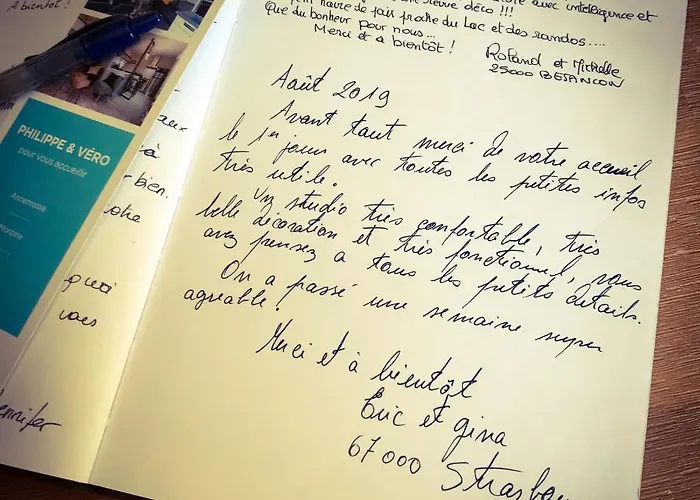 A bientôt !
PHILIPPE & VÉRO
pour vous accueillir
Annemasse
à
bien.
quoi
vous
Jennifer
déco !!! avec intelligence et
havre de paix proche du Lac et des randos....
Que du bonheur pour nous...
Merci et à bientôt !
Roland et Michelle
25000 BESANCON
Août 2019
Avant tout merci de votre accueil
le 1er jour avec toutes les petites infos
très utile.
Un studio très confortable, très
belle décoration et très fonctionnel, vous
avez pensez a tous les petits détails.
On a passé une semaine super
agréable !
Merci et à bientôt
Eric et gina
67000 Strasbou